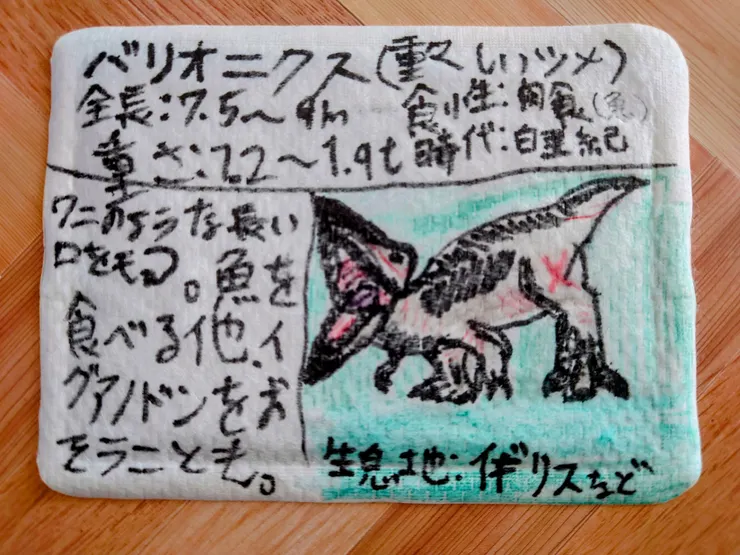 バリオニクス(重々しいツメ)
全長:7.5〜9m 食性:肉食(魚)
重さ:1.2〜1.9t 時代:白亜紀
ワニのような長い
口をもつ。魚を
食べる他、イ
グアノドンをお
そうことも。
生息地:イギリスなど